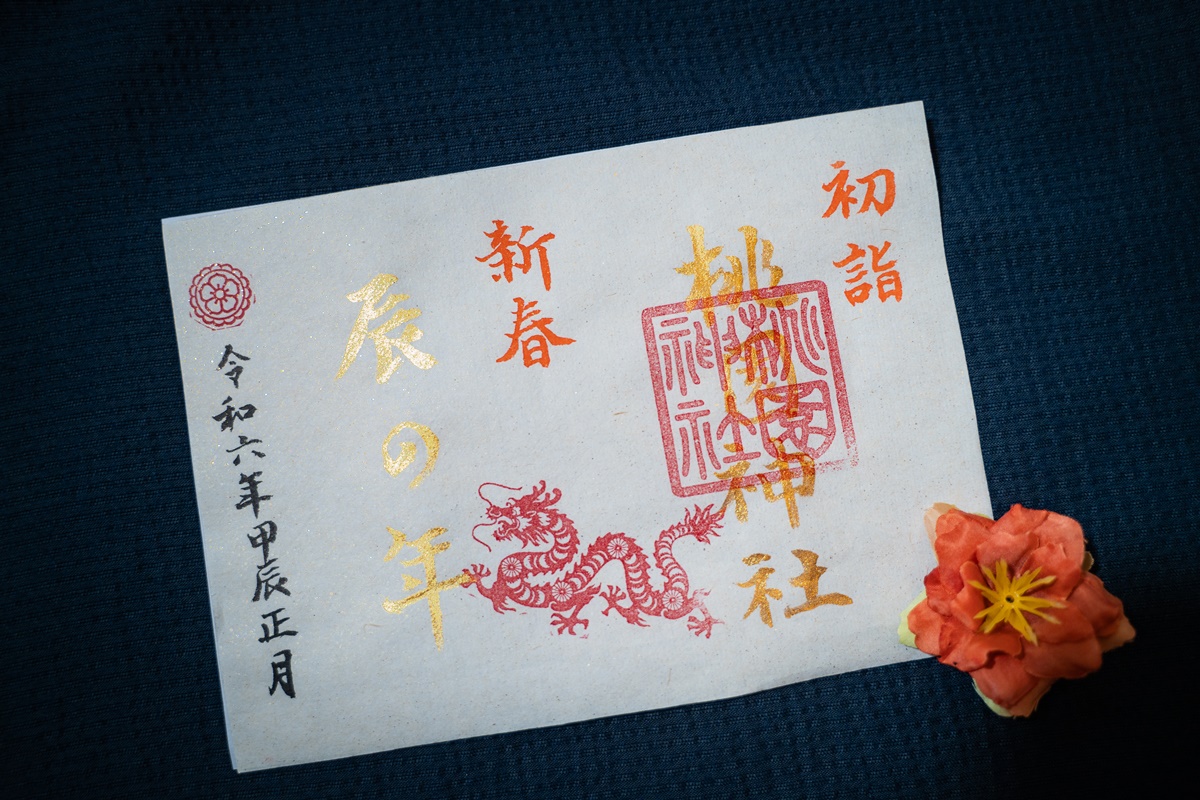 初詣
桃園神社
桃園
神社
新春
辰の年
令和六年甲辰正月